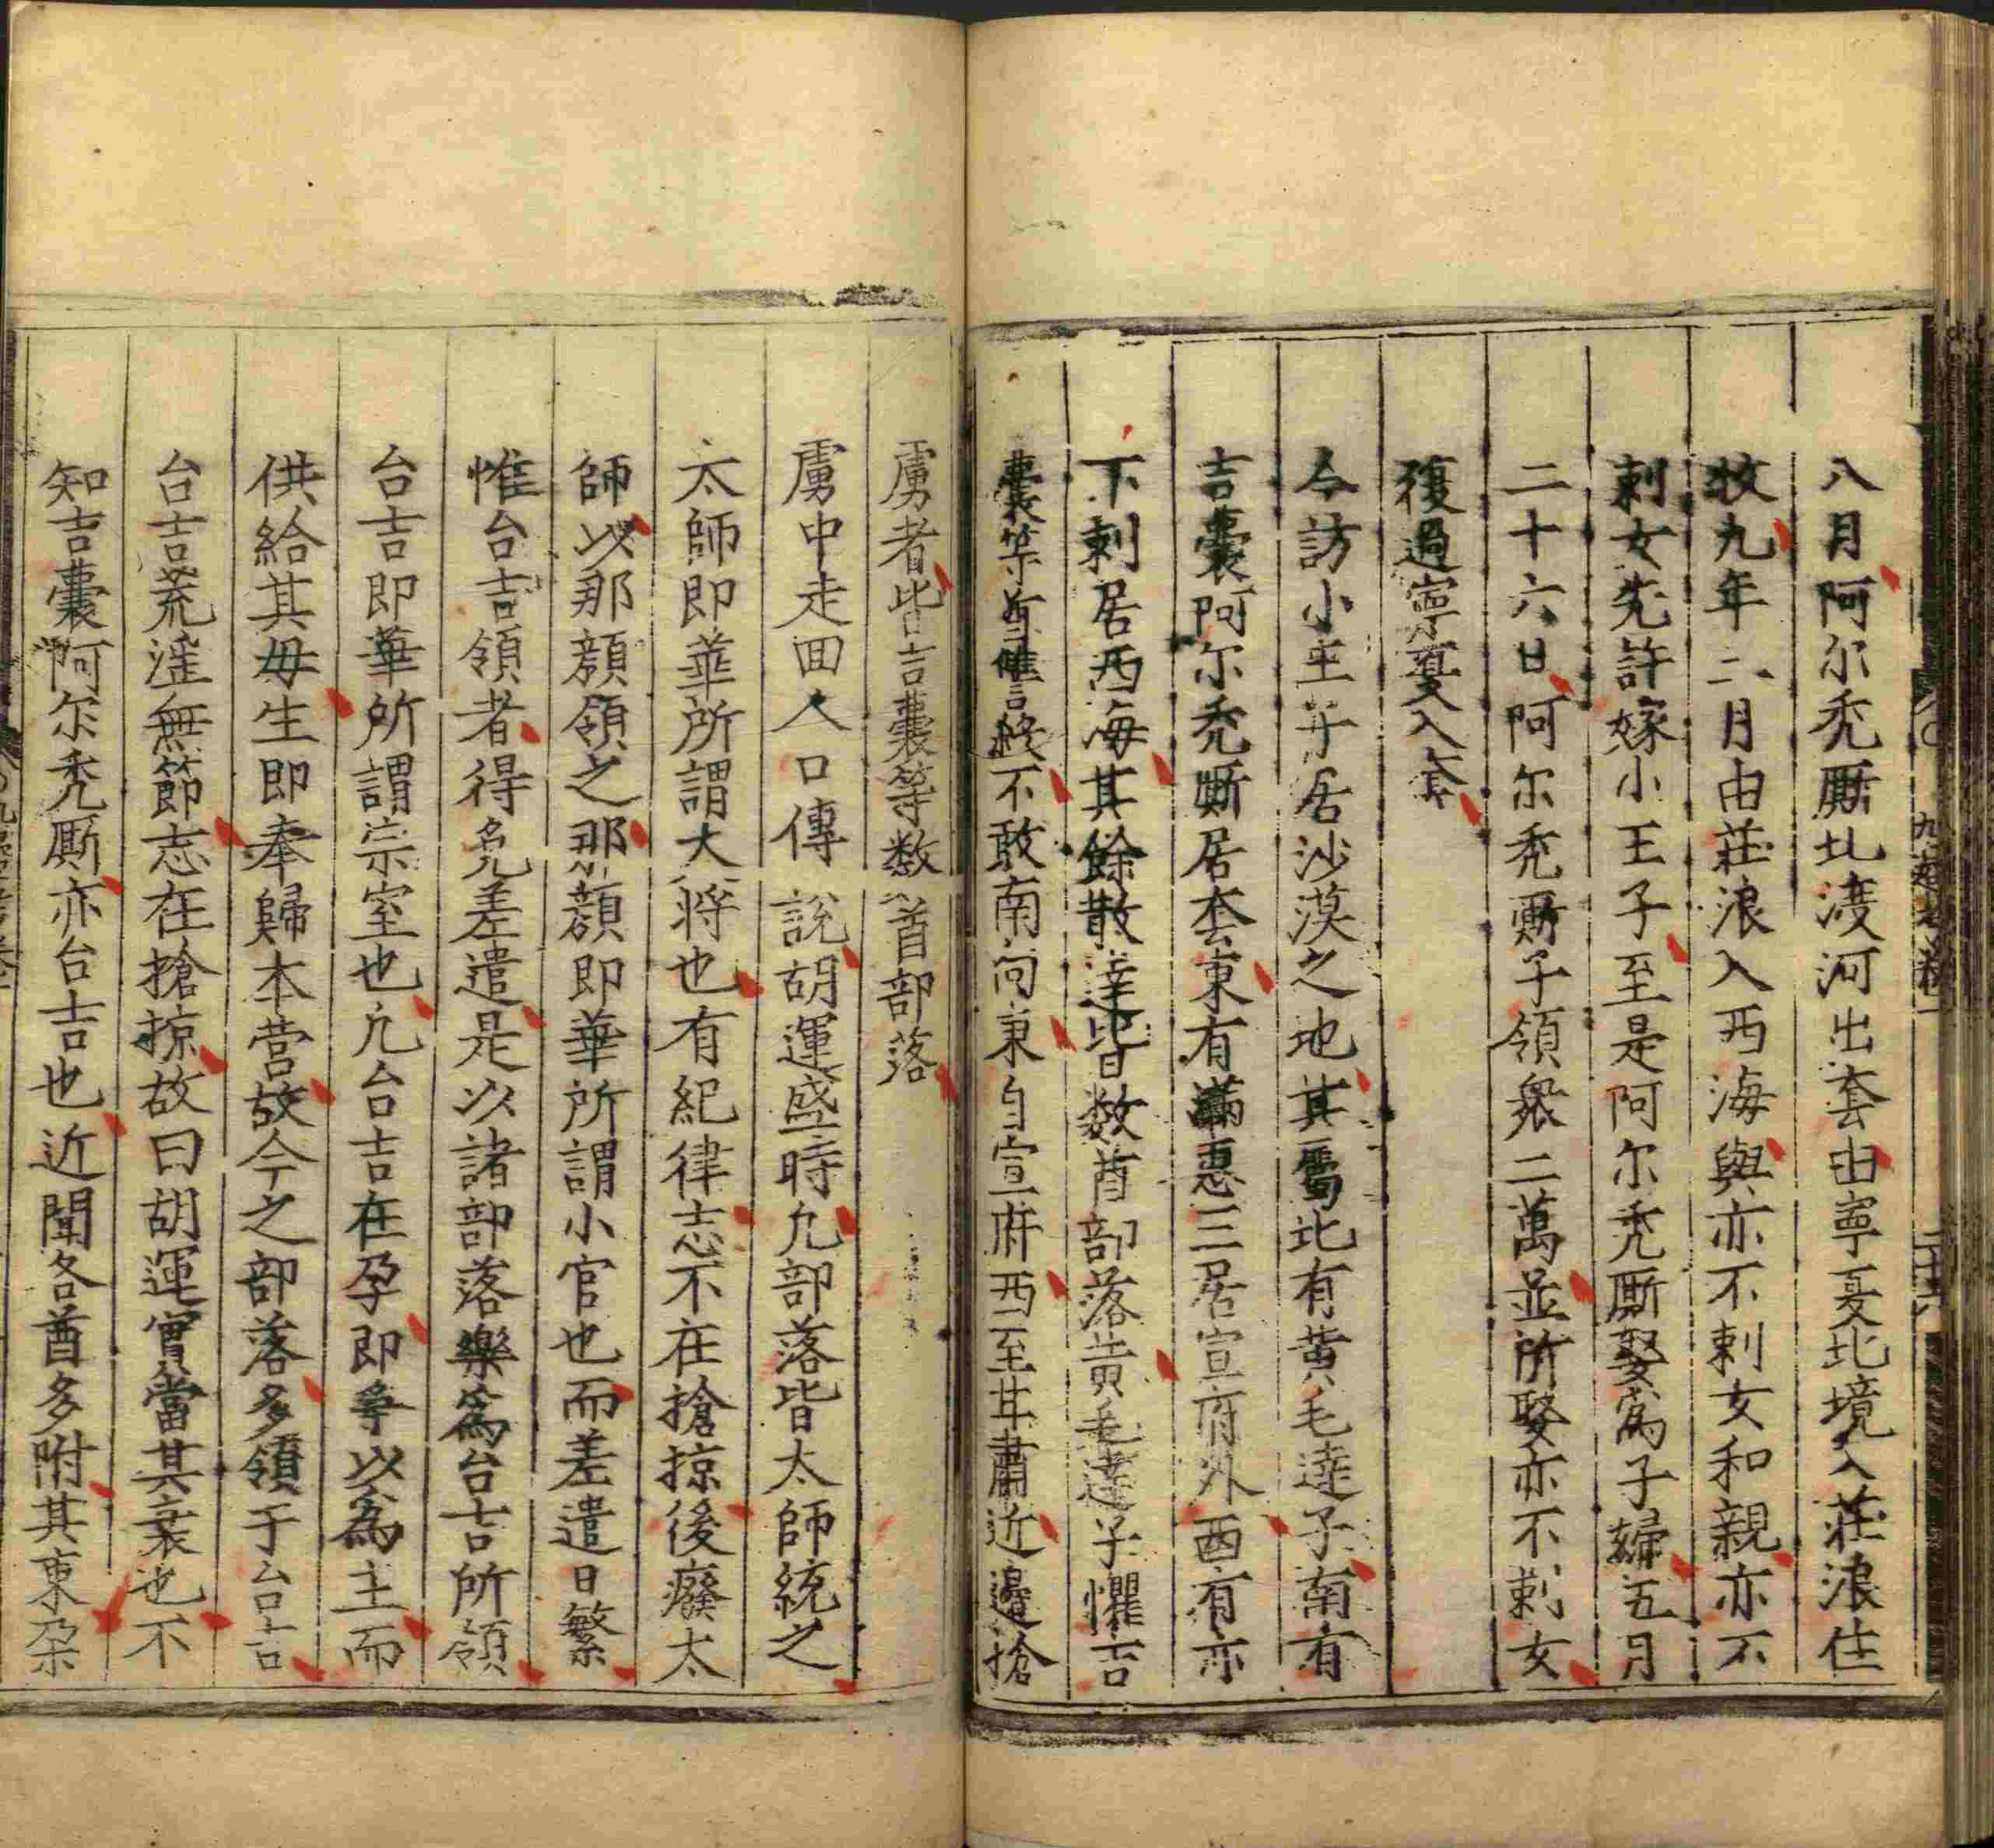 八月阿尔秃厮北渡河出套由寧夏北境入莊浪住
牧九年二月由莊浪入西海與亦不剌女和親亦不
剌女先許嫁小王子至是阿尔秃厮娶爲子婦五月
二十六日阿尔秃厮子領衆二萬並所娶亦不剌女
復過寧夏入套
今訪小王子居沙漠之地其屬北有黄毛達子南有
吉囊阿尔秃厮居套東有滿惠三居宣府外西有亦
不剌居西海其餘散達皆数酋部落黄毛達子懼吉
囊等讐終不敢南向東自宣府西至甘肅近邊搶
虜者皆吉囊等数首部落
虜中走回人口傳說胡運盛時凢部落皆太師統之
太師即華所謂大將也有紀律志不在搶掠後癈太
師以那顔領之那顔即華所謂小官也而差遣日繁
惟台吉領者得免差遣是以諸部落樂爲台吉所領
台吉即華所謂宗室也凢台吉在孕即爭以爲主而
供給其母生即奉歸本营故今之部落多領于台吉
台吉荒滛無節志在搶掠故曰胡運實當其衰也不
知吉囊阿尔秃厮亦台吉也近聞各酋多附其東朶
二十六